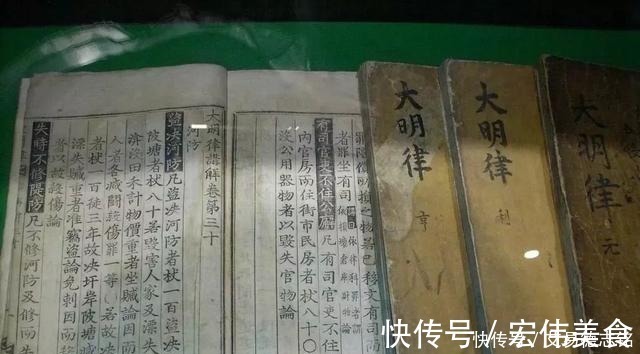 大明律
元
大明律
利
大明律
亨
者罪坐有司
有司官吏不住公廨凡有司官吏不
內官房而住街市民房者杖八十○
沒公用器物者以毀失官物論
大明律講解卷第三十
河防
盜決河防凡盜決河防者杖一百盜
陂塘者杖八十若毀害人家及漂失
渰田禾計物價重者坐贓論因而
人者各減鬪殺傷罪一等○若故決
者杖一百徒三年故決圩岸陂塘減
漂失贓重者准竊盜論免刺因而
者以故殺傷論
失時不修隄防凡不修河防及修而失
快传号／宏伟美食
快传号